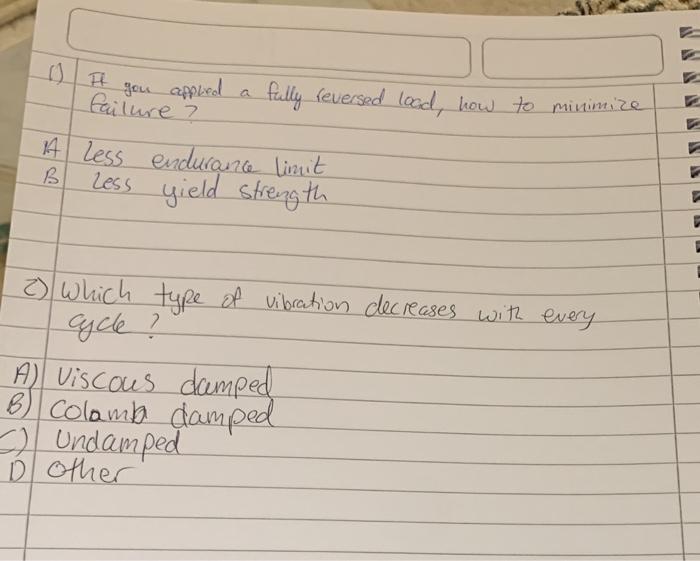 1) If you applied a fully reversed load, how to minimize
failure?
A Less endurance limit
B Less yield strength
2) Which type of vibration decreases with every
cycle?
A) Viscous damped
B) Colamb damped
C) Undamped
D Other